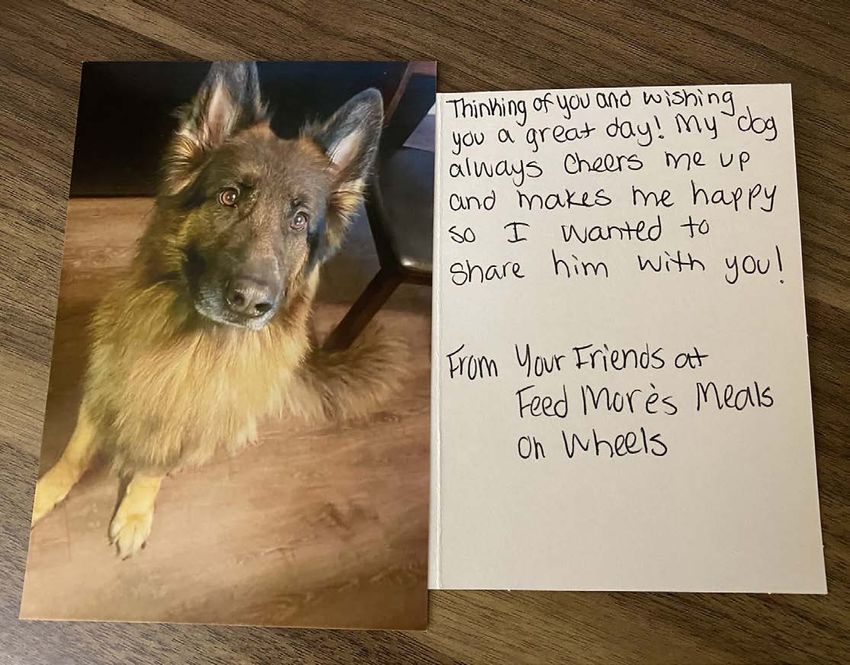 Thinking of you and wishing
you a great day! My dog
always cheers me up
and makes me happy
so I wanted to
share him with you!
From Your Friends at
Feed More's Meals
on Wheels